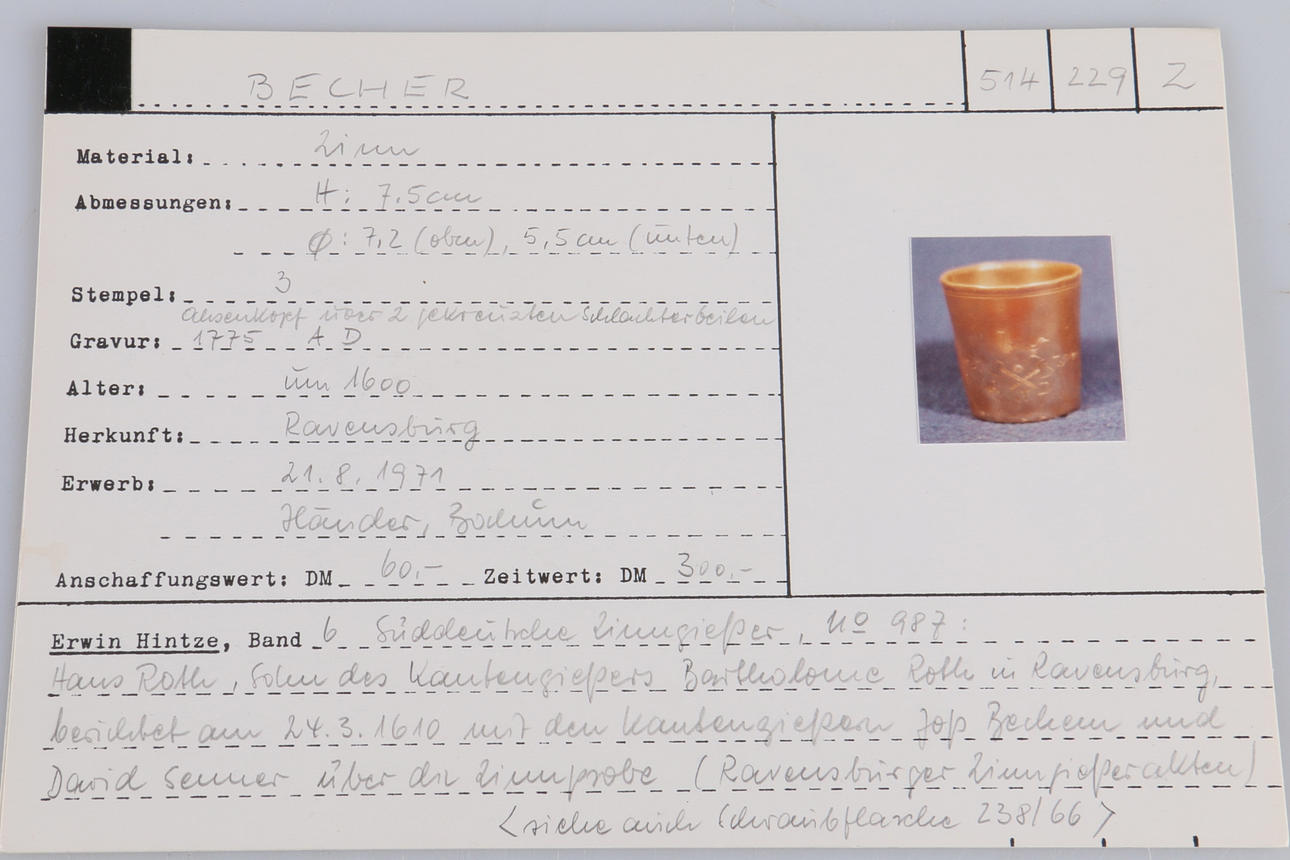 BECHER 514 229 Z
Material: Zinn
Abmessungen: H: 7.5cm
Ø: 7,2 (oben), 5,5cm (unten)
Stempel: 3
Ochsenkopf über 2 gekreuzten Schlachterbeilen
Gravur: 1775 A D
Alter: um 1600
Herkunft: Ravensburg
Erwerb: 21.8.1971
Bochum
Anschaffungswert: DM 60,- Zeitwert: DM 300,-
Erwin Hintze, Band 6 Süddeutsche Zinngießer, No 987:
Hans Roth, Sohn des Kantengießers Bartholome Roth in Ravensburg,
berichtet am 24.3.1610 mit den Kantengießern Joß und
David über die Zinnprobe (Ravensburger Zinngießerakten)
<siehe auch Schraubflasche 238/66>